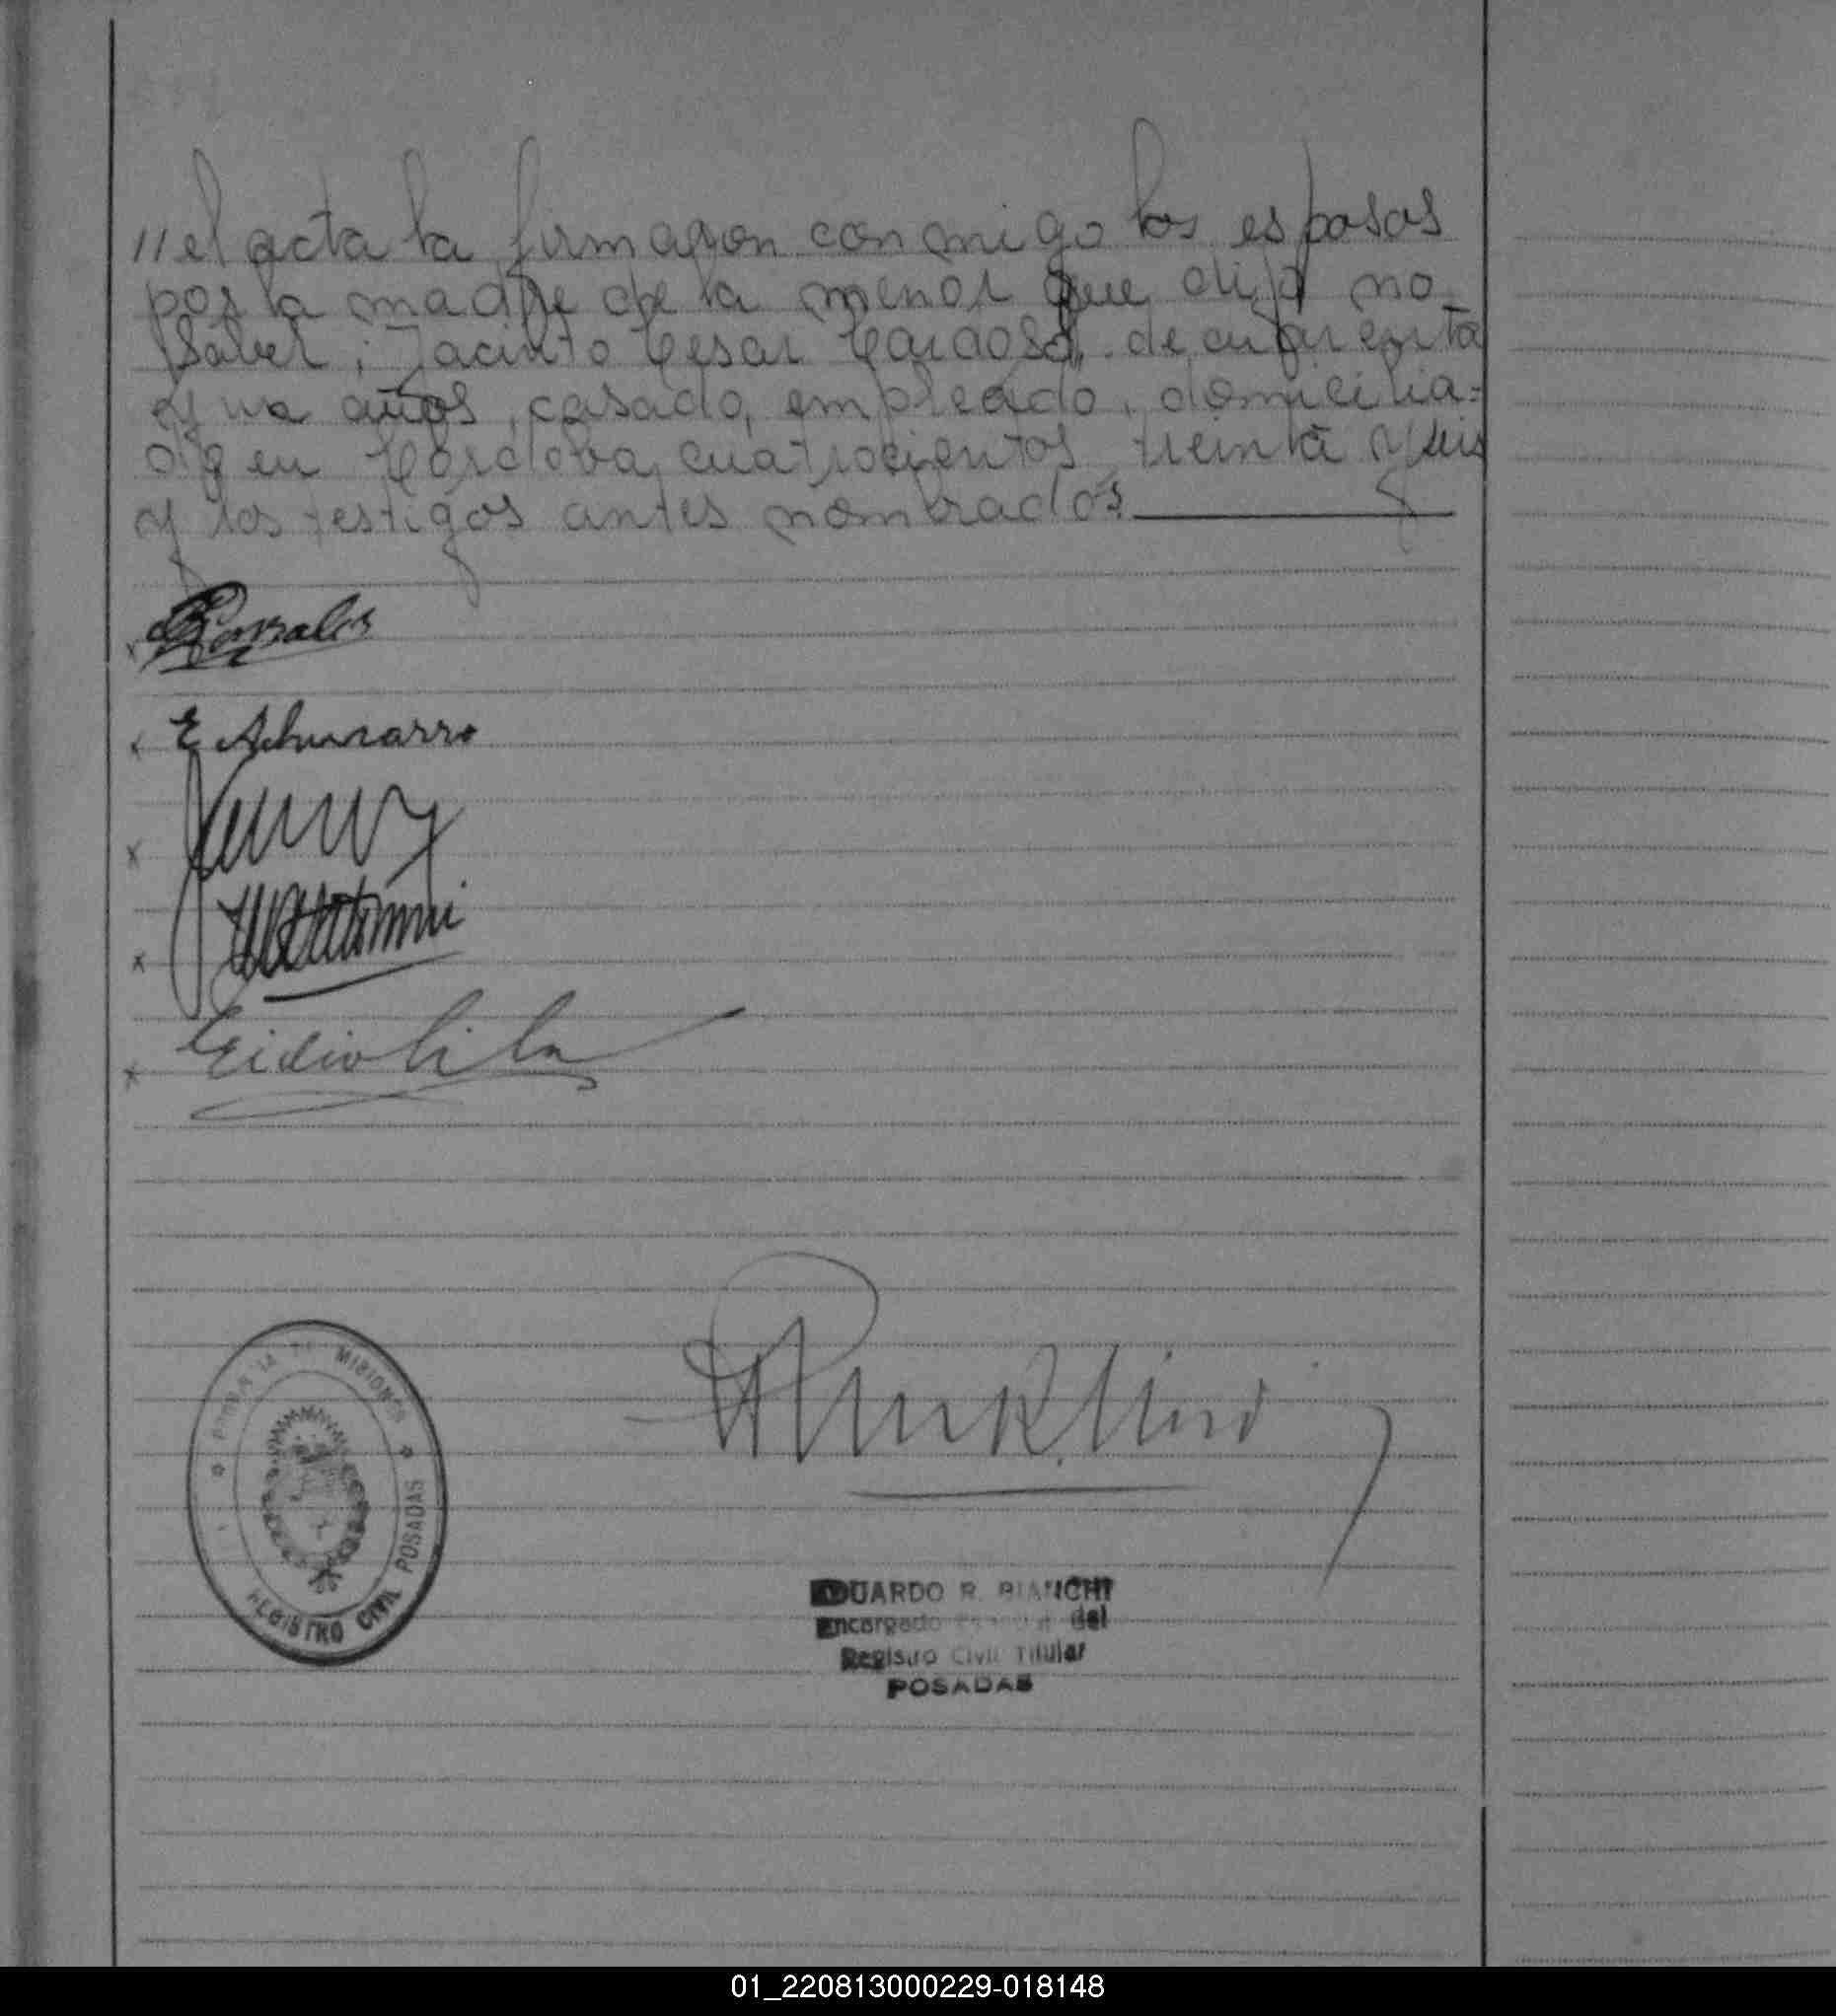 //el acta la firmaron conmigo los esposos
por la madre de la menor que dijo no
saber; Jacinto Cesar Cardoso, de cuarenta
y un años, casado, empleado, domicilia=
do en Córdoba, cuatrocientos treinta y seis
y los testigos antes nombrados.
Gonzales
E Achucarro
PROVINCIA DE MISIONES
REGISTRO CIVIL POSADAS
EDUARDO R. BIANCHI
Encargado del
Registro Civil Titular
POSADAS
01_220813000229-018148